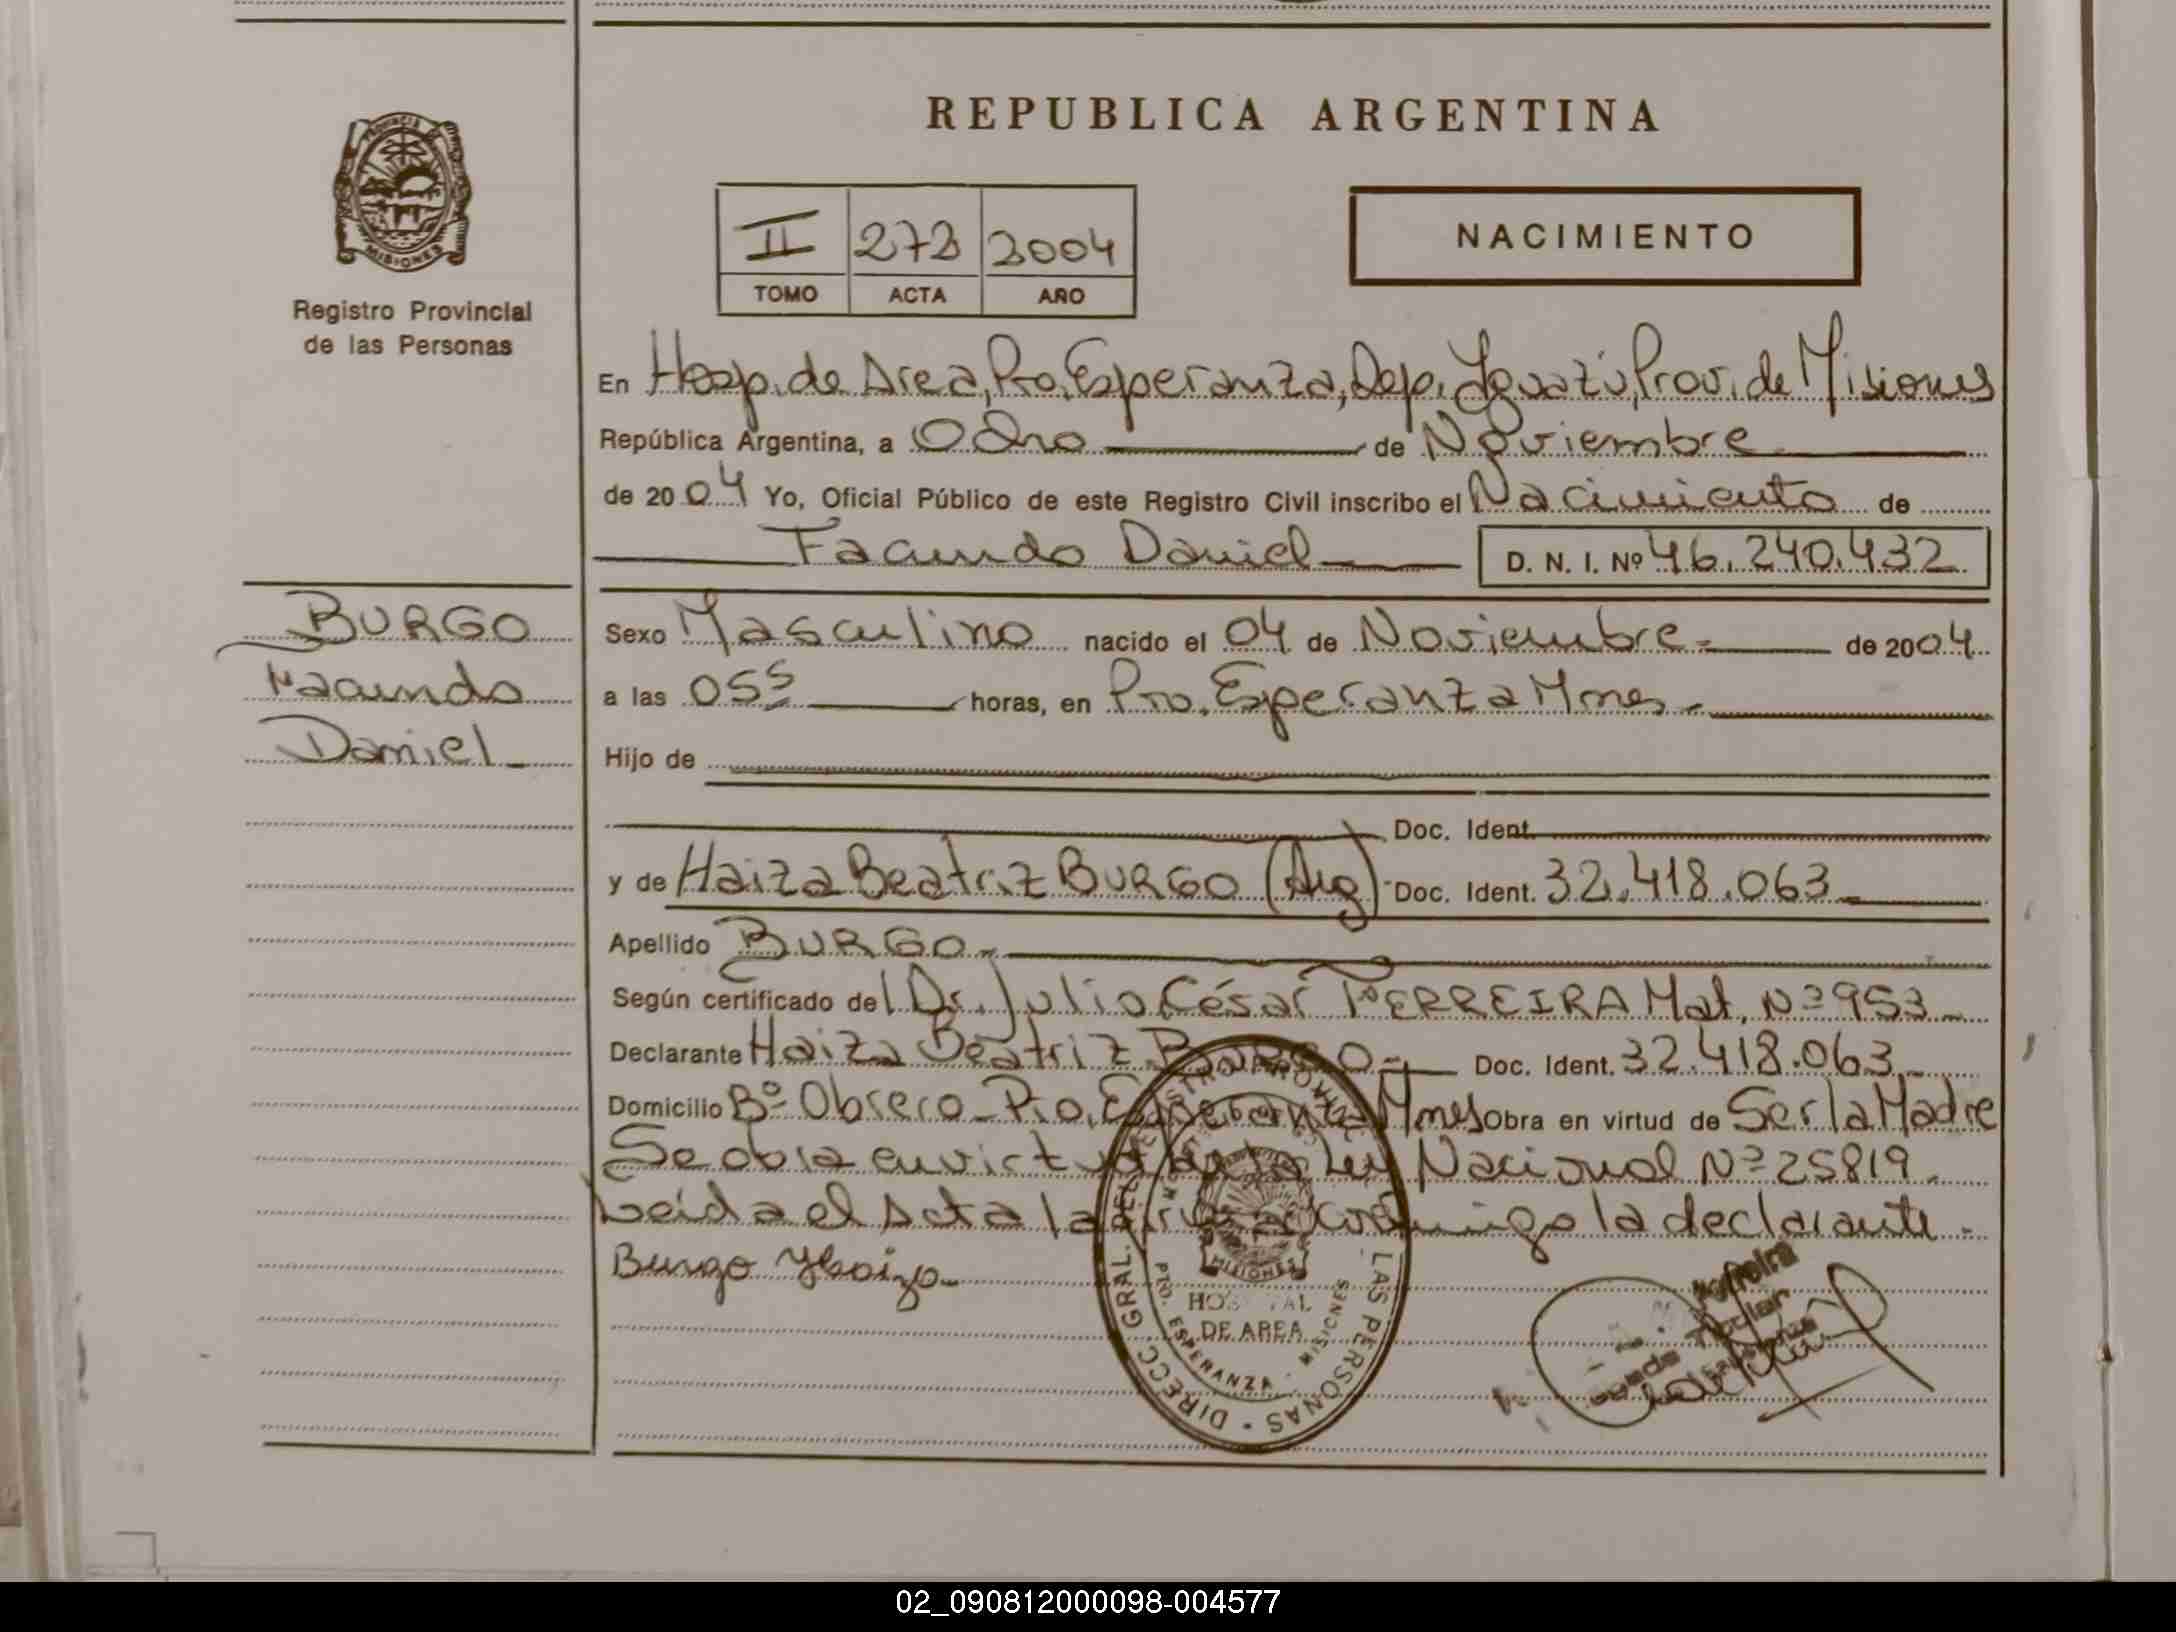 REPUBLICA ARGENTINA
PROVINCIA DE
MISIONES
Registro Provincial
de las Personas
II 272 2004
TOMO ACTA AÑO
NACIMIENTO
En Hosp. de Area, Pto. Esperanza, Dep. Iguazú, Prov. de Misiones
República Argentina, a Ocho de Noviembre
de 2004 Yo, Oficial Público de este Registro Civil inscribo el Nacimiento de
Facundo Daniel D. N. I. Nº 46.240.432
BURGO
Facundo
Daniel
Sexo Masculino nacido el 04 de Noviembre de 2004
a las 05 55 horas, en Pto. Esperanza Mnes.
Hijo de
Doc. Ident.
y de Haiza Beatriz BURGO (Arg) Doc. Ident. 32.418.063
Apellido BURGO
Según certificado del Dr. Julio César FERREIRA Mat. Nº 953
Declarante Haiza Beatriz BURGO Doc. Ident. 32.418.063
Domicilio Bº Obrero - Pto. Esperanza Mnes Obra en virtud de Ser la Madre
Se obra en virtud de la Ley Nacional Nº 25819.
Leida el Acta la firma conmigo la declarante.
Burgo Haiza
DIRECC. GRAL. DEL REGISTRO PROVINCIAL LAS PERSONAS
MISIONES
HOSPITAL
DE AREA
PTO. ESPERANZA - MISIONES
Titular
02_090812000098-004577